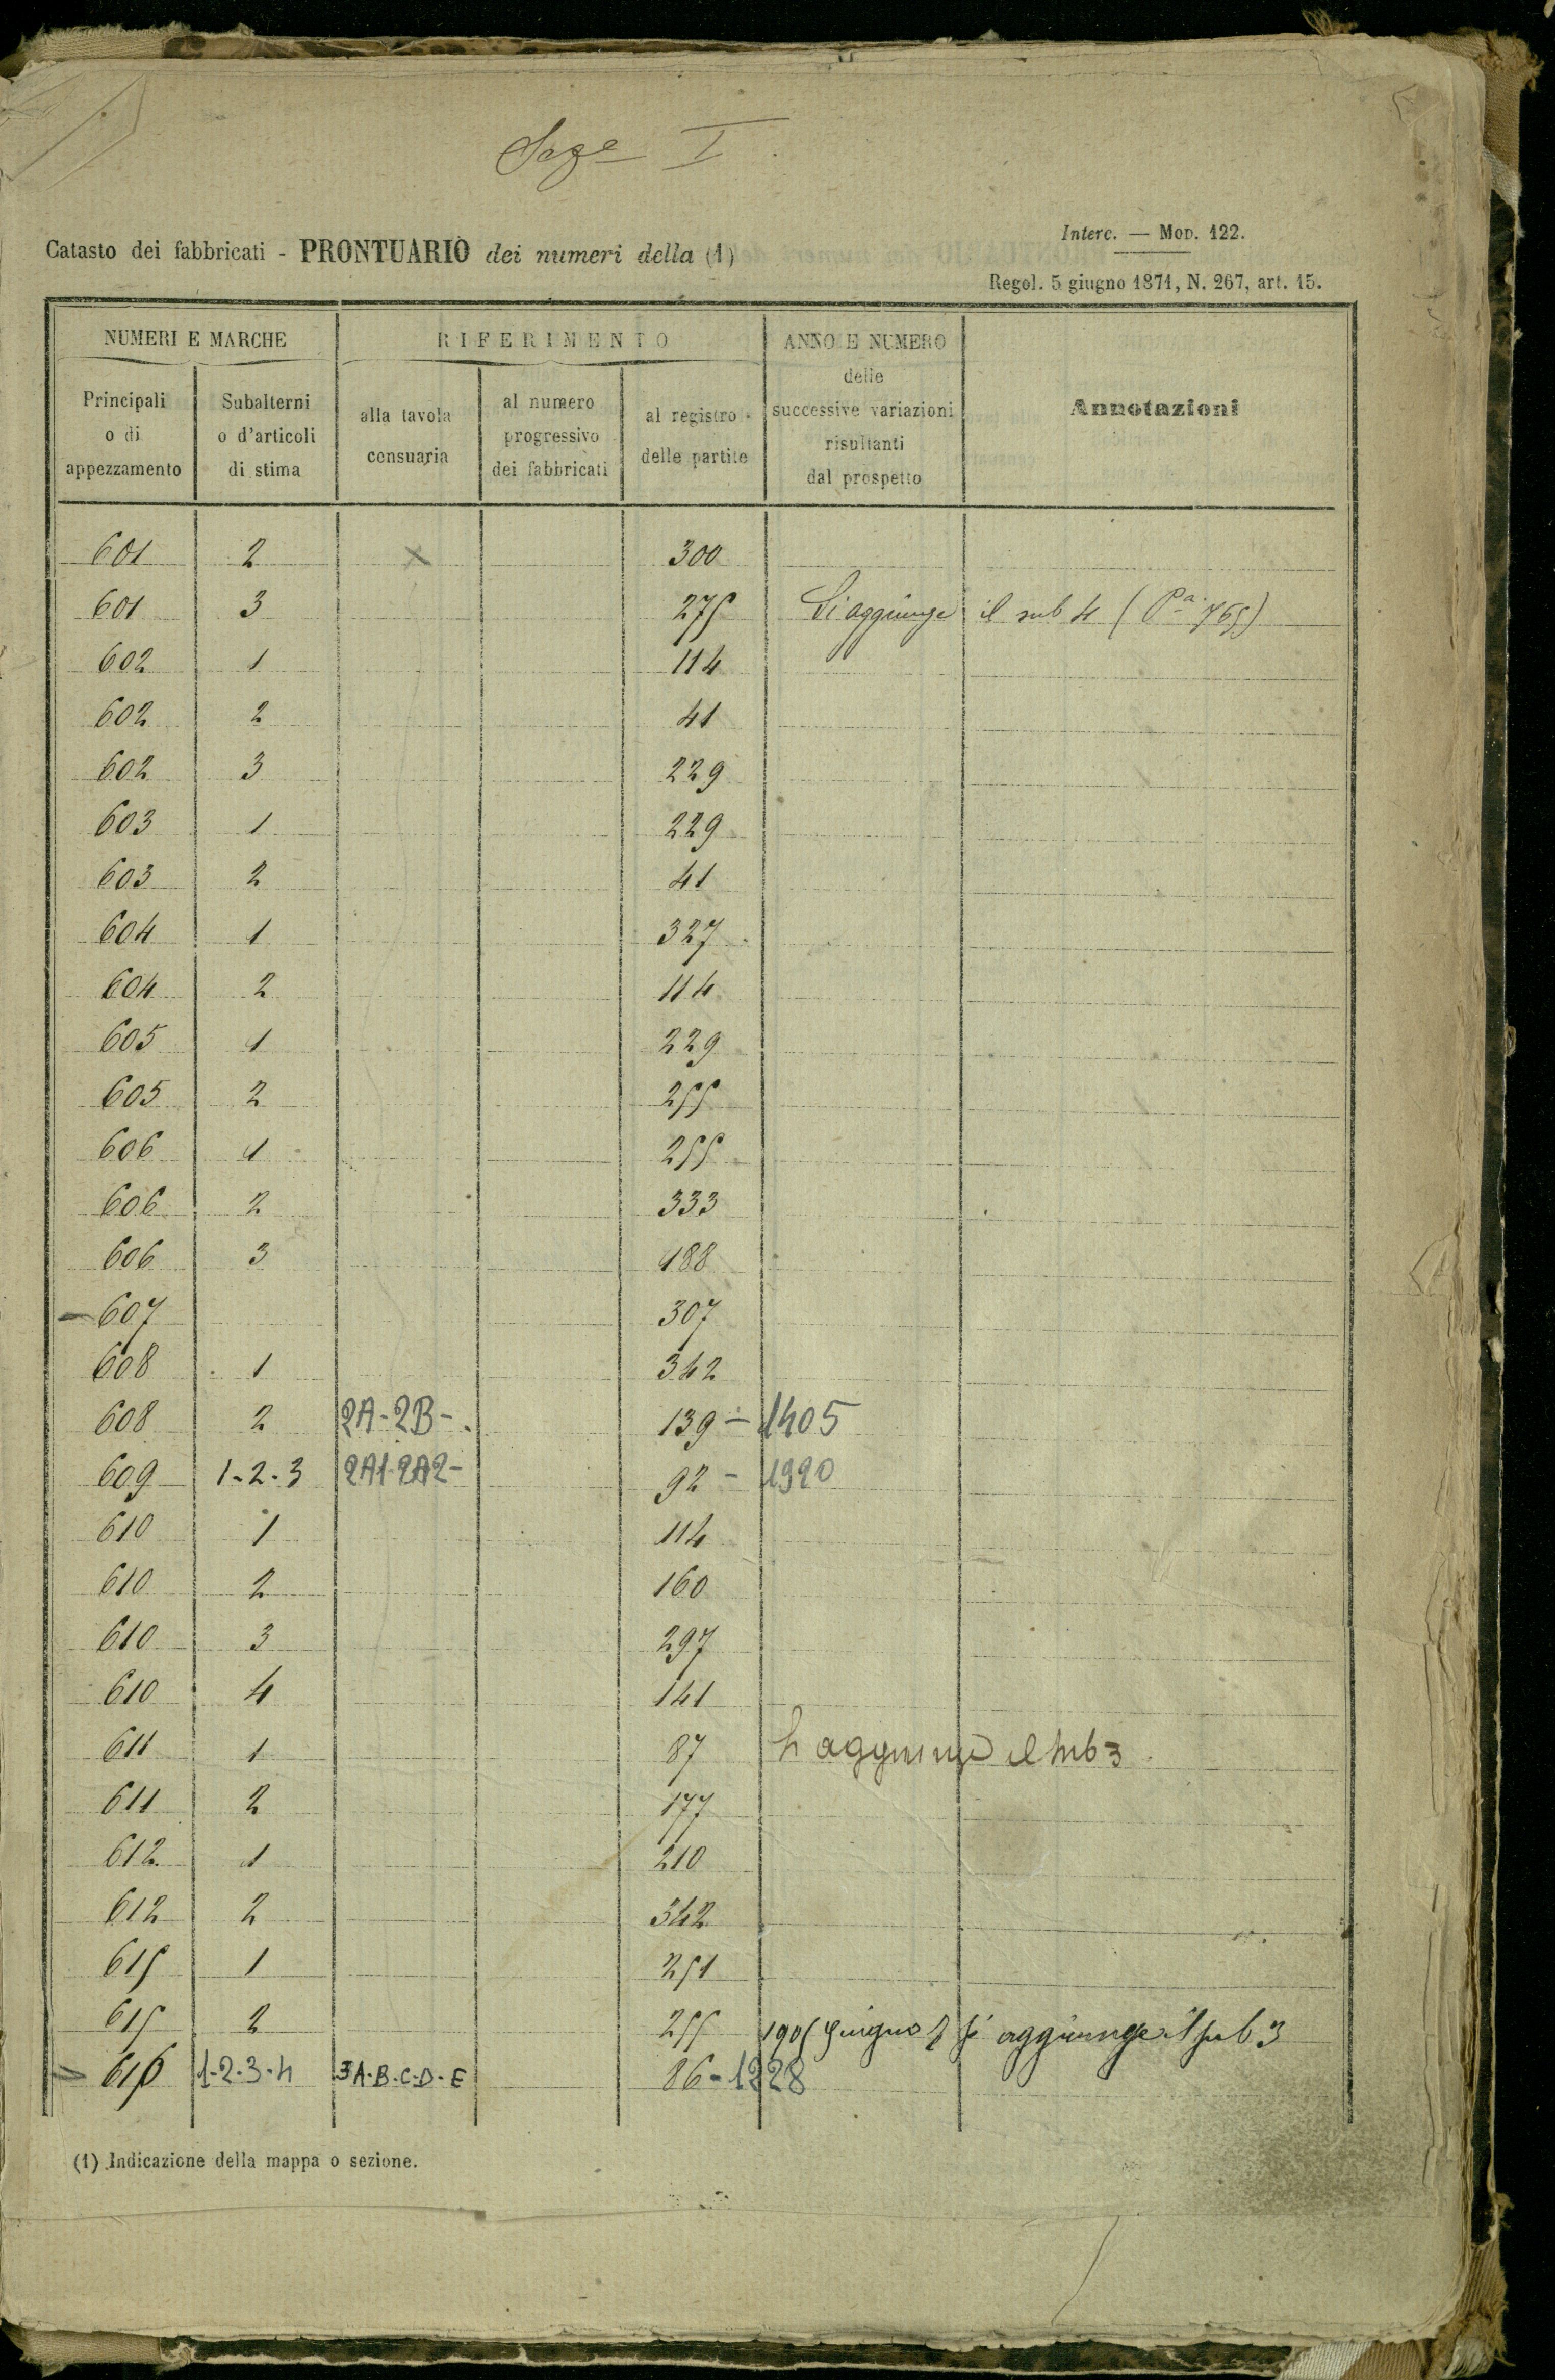 Seze I
Interc. — Mod. 122.
Catasto dei fabbricati - PRONTUARIO dei numeri della (1)
Regol. 5 giugno 1871, N. 267, art. 15.
NUMERI E MARCHE RIFERIMENTO ANNO E NUMERO delle successive variazioni risultanti dal prospetto Annotazioni
Principali o di appezzamento Subalterni o d'articoli di stima alla tavola censuaria al numero progressivo dei fabbricati al registro delle partite
601 2 x 300
601 3 275 Si aggiunge il sub 4 (Pa. 765)
602 1 114
602 2 41
602 3 229
603 1 229
603 2 41
604 1 327
604 2 114
605 1 229
605 2 255
606 1 255
606 2 333
606 3 188
- 607 307
608 1 342
608 2 2A-2B- 139 - 1405
609 1-2-3 2A1-2A2- 92 - 1920
610 1 114
610 2 160
610 3 297
610 4 141
611 1 87 si aggiunge il sub 3
611 2 177
612 1 210
612 2 342
615 1 251
615 2 255 1905 giugno si aggiunge il sub 3
616 1-2-3-4 3A-B-C-D-E 86-1228
(1) Indicazione della mappa o sezione.